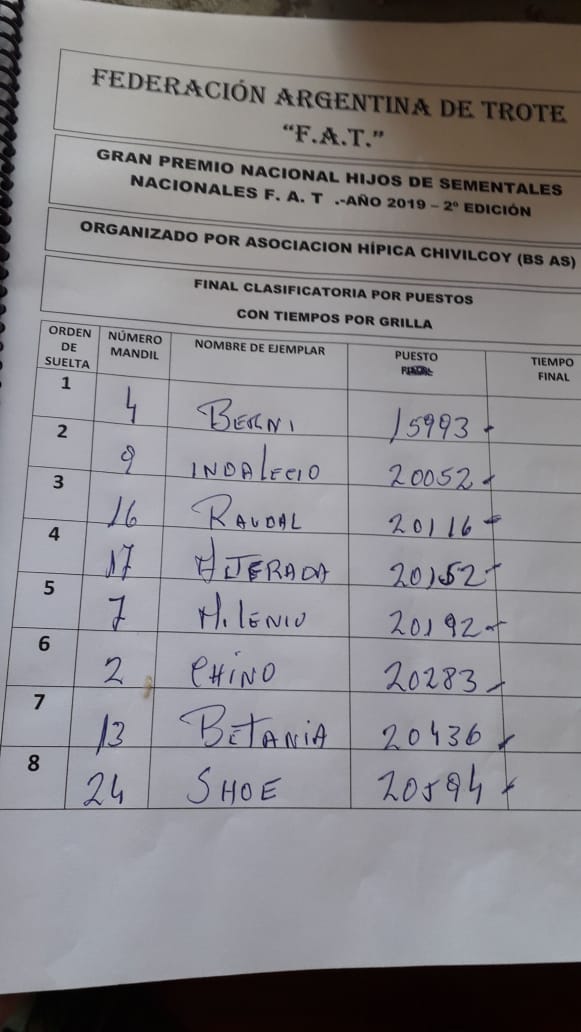 FEDERACIÓN ARGENTINA DE TROTE
"F.A.T."
GRAN PREMIO NACIONAL HIJOS DE SEMENTALES
NACIONALES F. A. T .-AÑO 2019 – 2º EDICIÓN
ORGANIZADO POR ASOCIACION HÍPICA CHIVILCOY (BS AS)
FINAL CLASIFICATORIA POR PUESTOS
CON TIEMPOS POR GRILLA
ORDEN DE SUELTA NÚMERO MANDIL NOMBRE DE EJEMPLAR PUESTO TIEMPO FINAL
1 4 15993
2 9 INDALECIO 20052
3 16 RAUDAL 20116
4 17 20152
5 7 MILENIO 20192
6 2 CHINO 20283
7 13 BETANIA 20436
8 24 SHOE 20594